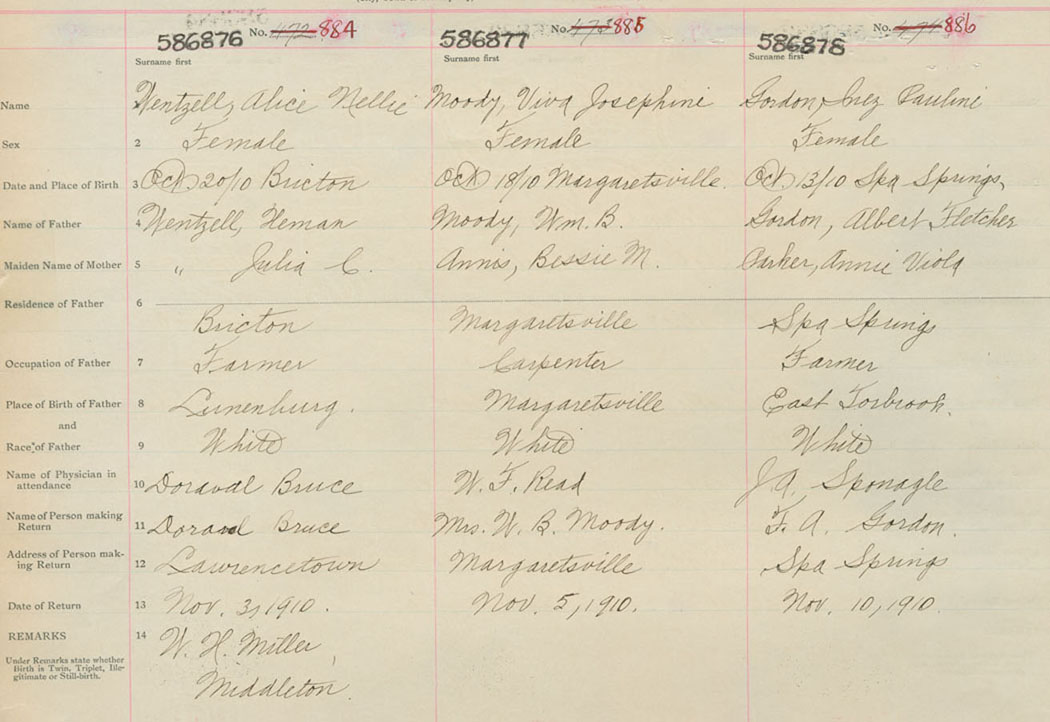 586876 No. 472 884
586877 No. 473 885
586878 No. 474 886
Surname first Surname first Surname first
Name Wentzell, Alice Nellie Moody, Viva Josephine Gordon, Inez Pauline
Sex 2 Female Female Female
Date and Place of Birth 3 Oct 20/10 Bricton Oct 18/10 Margaretsville. Oct 13/10 Spa Springs,
Name of Father 4 Wentzell, Heman Moody, Wm. B. Gordon, Albert Fletcher
Maiden Name of Mother 5 " Julia C. Annis, Bessie M. Parker, Annie Viola
Residence of Father 6
Bricton Margaretsville Spa Springs
Occupation of Father 7 Farmer Carpenter Farmer
Place of Birth of Father 8 Lunenburg. Margaretsville East Torbrook.
and
Race of Father 9 White White White
Name of Physician in
attendance 10 Doraval Bruce W. F. Read J A. Sponagle
Name of Person making
Return 11 Bruce Mrs. W. B. Moody. F. A. Gordon.
Address of Person mak-
ing Return 12 Lawrencetown Margaretsville Spa Springs
Date of Return 13 Nov. 3, 1910. Nov. 5, 1910. Nov. 10, 1910.
REMARKS 14 W. H. Miller
Under Remarks state whether
Birth is Twin, Triplet, Ille-
gitimate or Still-birth.
Middleton.